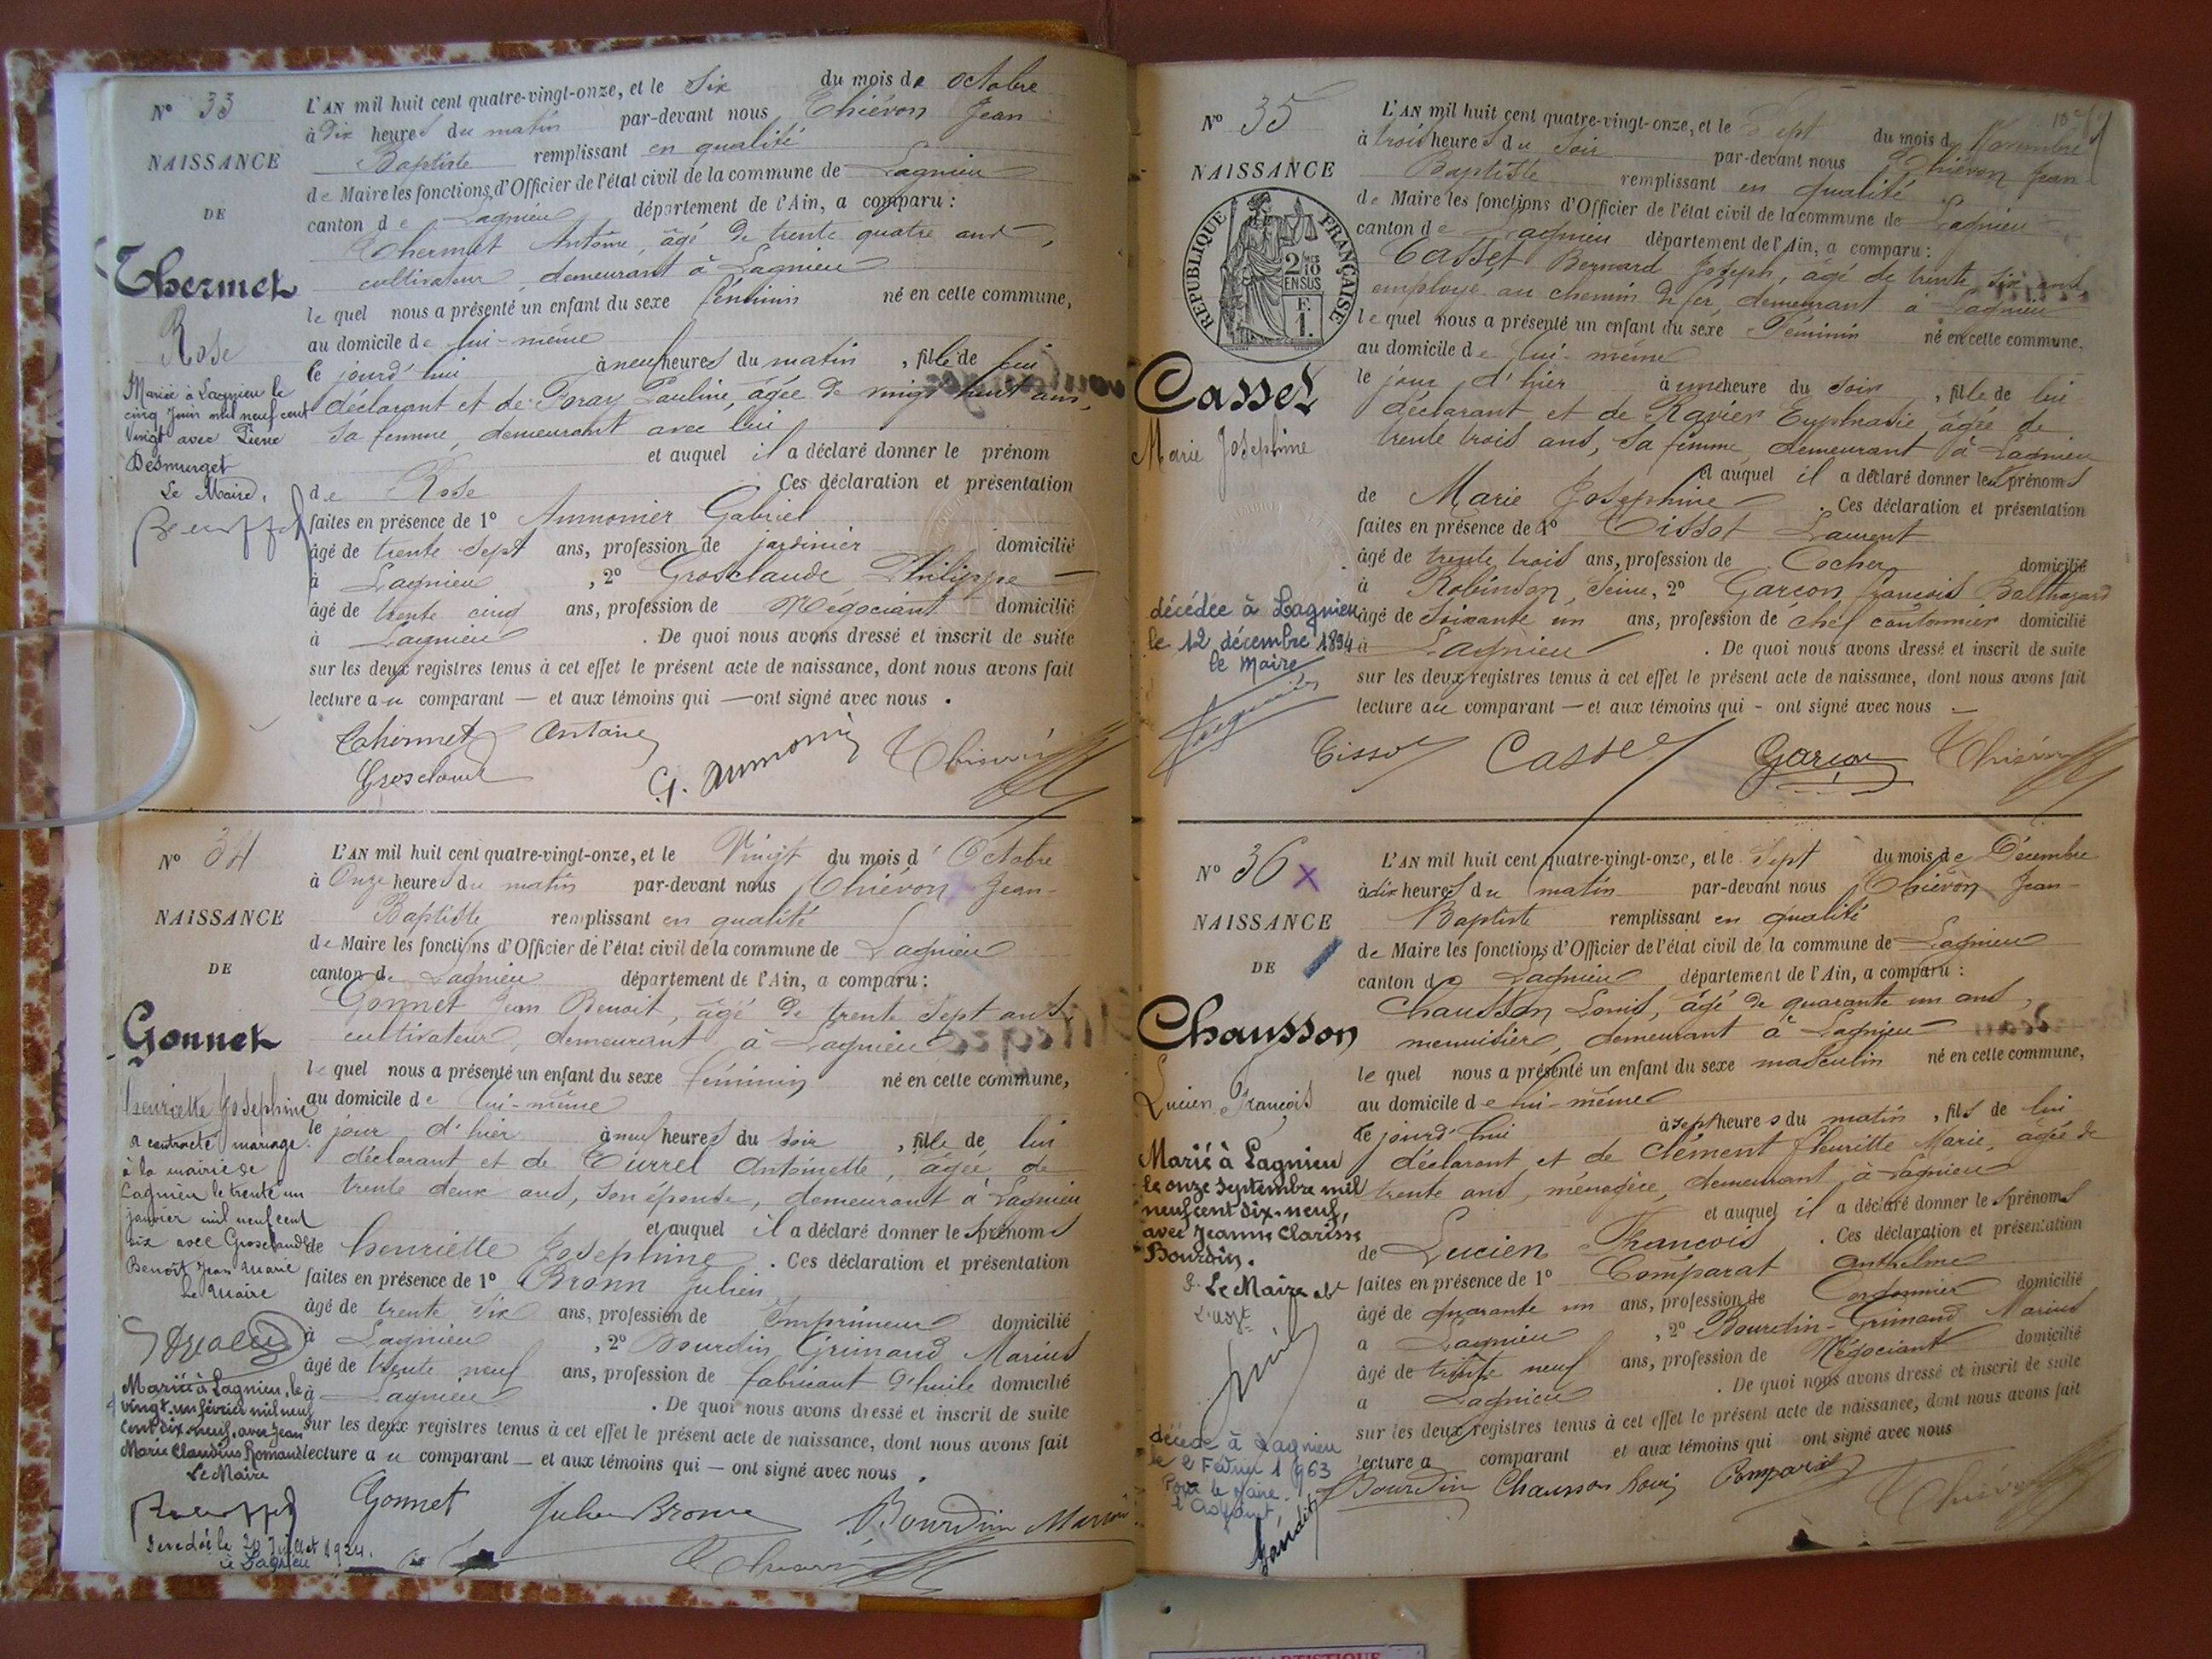 N° 33
NAISSANCE
DE
Thermet
Rose
Marié à Lagnieu le
cinq Juin mil neuf cent
Vingt avec Pierre
Desmurget
Le Maire,
L'AN mil huit cent quatre-vingt-onze, et le Six du mois de octobre
à dix heures du matin par-devant nous Thiévon Jean-
Baptiste remplissant en qualité
de Maire les fonctions d'Officier de l'état civil de la commune de Lagnieu
canton de Lagnieu département de l'Ain, a comparu :
Thermet Antoine, âgé de trente quatre ans,
cultivateur, demeurant à Lagnieu
lequel nous a présenté un enfant du sexe féminin né en cette commune,
au domicile de lui-même
le jourd'hui à neuf heures du matin, fille de lui
déclarant et de Foray Pauline, âgée de vingt huit ans,
sa femme, demeurant avec lui
et auquel il a déclaré donner le prénom
de Rose. Ces déclaration et présentation
faites en présence de 1° Aumonier Gabriel
âgé de trente sept ans, profession de jardinier domicilié
à Lagnieu, 2° Grosclaude Philippe
âgé de trente cinq ans, profession de Négociant domicilié
à Lagnieu. De quoi nous avons dressé et inscrit de suite
sur les deux registres tenus à cet effet le présent acte de naissance, dont nous avons fait
lecture au comparant — et aux témoins qui — ont signé avec nous.
Thermet Antoine
Grosclaude G. Aumonier Thiévon
N° 34
NAISSANCE
DE
Gonnet
henriette Josephine
a contracté mariage
à la mairie de
Lagnieu le trente un
janvier mil neuf cent
dix avec Grosclaude
Benoît Jean Marie
Le Maire
Mariée à Lagnieu, le
vingt-un février mil neuf
cent dix-neuf, avec Jean
Marie Claudius Romand
Le Maire
décédée le 20 Juillet 1924.
à Lagnieu
L'AN mil huit cent quatre-vingt-onze, et le Vingt du mois d' Octobre
à Onze heures du matin par-devant nous Thiévon Jean-
Baptiste remplissant en qualité
de Maire les fonctions d'Officier de l'état civil de la commune de Lagnieu
canton de Lagnieu département de l'Ain, a comparu :
Gonnet Jean Benoit, âgé de trente sept ans,
cultivateur, demeurant à Lagnieu
lequel nous a présenté un enfant du sexe féminin né en cette commune,
au domicile de lui-même
le jour d'hier à neuf heures du soir, fille de lui
déclarant et de Turrel Antoinette, âgée de
trente deux ans, son épouse, demeurant à Lagnieu
et auquel il a déclaré donner les prénoms
de henriette Josephine. Ces déclaration et présentation
faites en présence de 1° Bronn Julien
âgé de trente six ans, profession de Imprimeur domicilié
à Lagnieu, 2° Bourdin Grimaud Marius
âgé de trente neuf ans, profession de fabricant d'huile domicilié
à Lagnieu. De quoi nous avons dressé et inscrit de suite
sur les deux registres tenus à cet effet le présent acte de naissance, dont nous avons fait
lecture au comparant — et aux témoins qui — ont signé avec nous.
Gonnet Julien Bronn Bourdin Marius
Thiévon
N° 35
NAISSANCE
RÉPUBLIQUE FRANÇAISE
2/10 MES
EN SUS
F.
1.
Casset
Marie Josephine
décédée à Lagnieu
le 12 décembre 1894
le Maire
L'AN mil huit cent quatre-vingt-onze, et le Sept du mois de Novembre
à trois heures du soir par-devant nous Thiévon Jean-
Baptiste remplissant en qualité
de Maire les fonctions d'Officier de l'état civil de la commune de Lagnieu
canton de Lagnieu département de l'Ain, a comparu :
Casset Bernard Joseph, âgé de trente six ans,
employé au chemin de fer, demeurant à Lagnieu
lequel nous a présenté un enfant du sexe Féminin né en cette commune,
au domicile de lui-même
le jour d'hier à une heure du soir, fille de lui
déclarant et de Ravier Euphrasie, âgée de
trente trois ans, sa femme, demeurant à Lagnieu
et auquel il a déclaré donner les prénoms
de Marie Josephine. Ces déclaration et présentation
faites en présence de 1° Tissot Laurent
âgé de trente trois ans, profession de Cocher domicilié
à Robinson, Seine, 2° Garçon François Balthazard
âgé de soixante un ans, profession de chef cantonnier domicilié
à Lagnieu. De quoi nous avons dressé et inscrit de suite
sur les deux registres tenus à cet effet le présent acte de naissance, dont nous avons fait
lecture au comparant — et aux témoins qui - ont signé avec nous —
Tissot Casset Garçon Thiévon
N° 36 x
NAISSANCE
DE
Chausson
Lucien François
Marié à Lagnieu
le onze septembre mil
neuf cent dix-neuf,
avec Jeanne Clarisse
Bourdin.
P. Le Maire abt
L'adjt
décédé à Lagnieu
le 2 Février 1963
Pour le Maire.
l'Adjoint,
L'AN mil huit cent quatre-vingt-onze, et le Sept du mois de Décembre
à dix heures du matin par-devant nous Thiévon Jean-
Baptiste remplissant en qualité
de Maire les fonctions d'Officier de l'état civil de la commune de Lagnieu
canton de Lagnieu département de l'Ain, a comparu :
Chausson Louis, âgé de quarante un ans,
menuisier, demeurant à Lagnieu
lequel nous a présenté un enfant du sexe masculin né en cette commune,
au domicile de lui-même
le jourd'hui à sept heures du matin, fils de lui
déclarant et de Clément fleuritte Marie, âgée de
trente ans, ménagère, demeurant à Lagnieu
et auquel il a déclaré donner les prénoms
de Lucien François. Ces déclaration et présentation
faites en présence de 1° Comparat anthelme
âgé de quarante un ans, profession de Cordonnier domicilié
à Lagnieu, 2° Bourdin-Grimaud Marius
âgé de trente neuf ans, profession de Négociant domicilié
à Lagnieu. De quoi nous avons dressé et inscrit de suite
sur les deux registres tenus à cet effet le présent acte de naissance, dont nous avons fait
lecture a comparant et aux témoins qui ont signé avec nous
Bourdin Chausson Louis Comparat Thiévon